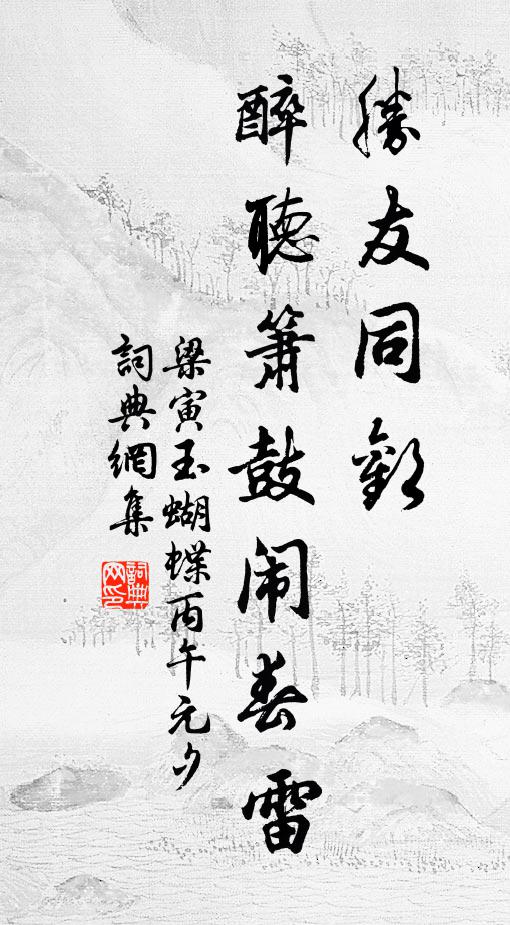 勝友同歡
醉聽簫鼓闹春雷
梁寅玉蝴蝶丙午元夕
詞典網集
詞典
网印